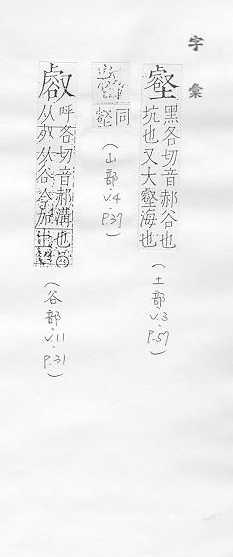 字彙
壑
黑各切音郝谷也
坑也又大壑海也
(土部 V.3 P.57)
同
壑
(山部 V.4 P.39)
㕡
呼各切音郝溝也
从谷
(谷部 V.11 P.31)